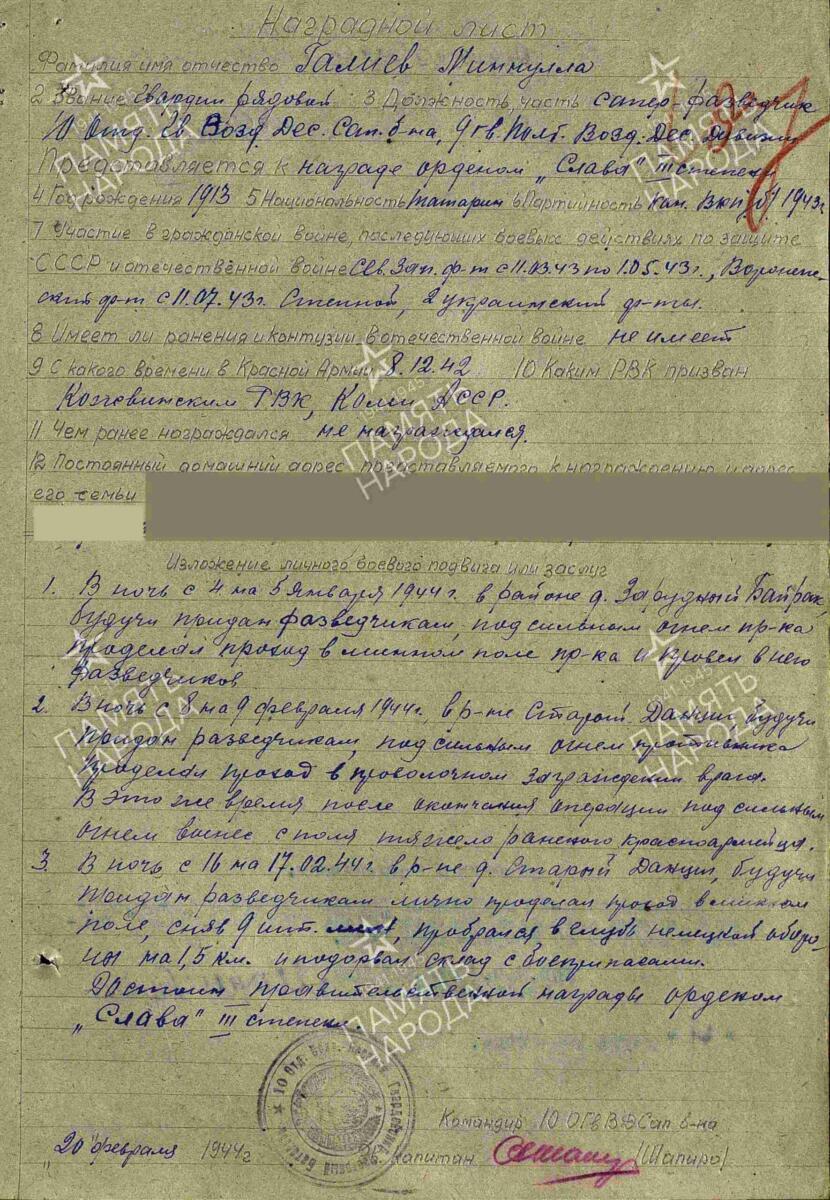 Наградной лист
Фамилия имя отчество Галиев Миннулла
2 Звание гвардии рядовой 3 Должность, часть сапер-разведчик
10 Отд. Гв Возд. Дес. Сап. б-на, 9 гв. Полт. Возд. Дес. Дивизии
Представляется к награде орденом „Слава" III степени
4 Год рождения 1913 5 Национальность татарин 6 Партийность кан. ВКП(б) 1943г
7 Участие в гражданской войне, последующих боевых действиях по защите
СССР и отечественной войне Сев. Зап. ф-т с 11.03.43 по 1.05.43г., Воронеж-
ский фр-т с 11.07.43г. Степной, 2 украинский фр-ты.
8 Имеет ли ранения и контузии в отечественной войне не имеет
9 С какого времени в Красной Армии 8.12.42 10 Каким РВК призван
Кожвинским РВК, Коми АССР.
11 Чем ранее награждался не награждался.
12 Постоянный домашний адрес представляемого к награждению и адрес
его семьи
Изложение личного боевого подвига или заслуг
1. В ночь с 4 на 5 января 1944 г. в районе д. Зарудный Байрак,
будучи придан разведчикам, под сильным огнем пр-ка
проделал проход в минном поле пр-ка и провел в него
разведчиков
2. В ночь с 8 на 9 февраля 1944г., в р-не Старой Данции, будучи
придан разведчикам, под сильным огнем противника
проделал проход в проволочном заграждении врага.
В это же время после окончания операции под сильным
огнем вынес с поля тяжело раненого красноармейца.
3. В ночь с 16 на 17.02.44г. в р-не д. Старый Данции, будучи
придан разведчикам лично проделал проход в минном
поле, сняв 9 шт. мин, пробрался в глубь немецкой оборо-
ны на 1,5 км. и подорвал склад с боеприпасами.
Достоин правительственной награды орденом
„Слава" III степени.
Командир 10 ОГвВДСап б-на
„20" февраля 1944г Капитан (Шапиро)
ПАМЯТЬ НАРОДА
1941-1945